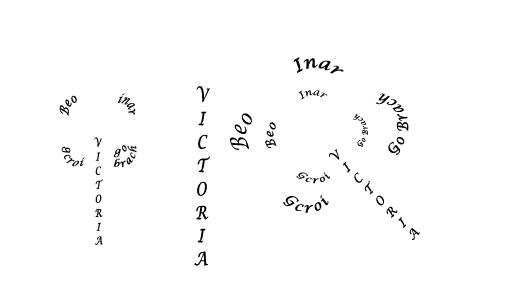 Beo
inar
gcroi
go
brach
VICTORIA
VICTORIA
Beo
Beo
Inar
Inar
Go Brach
Go Brach
Gcroi
Gcroi
VICTORIA